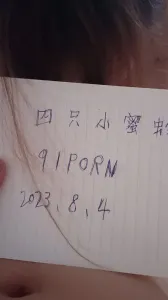 四只小蜜
91PORN
2023.8.4